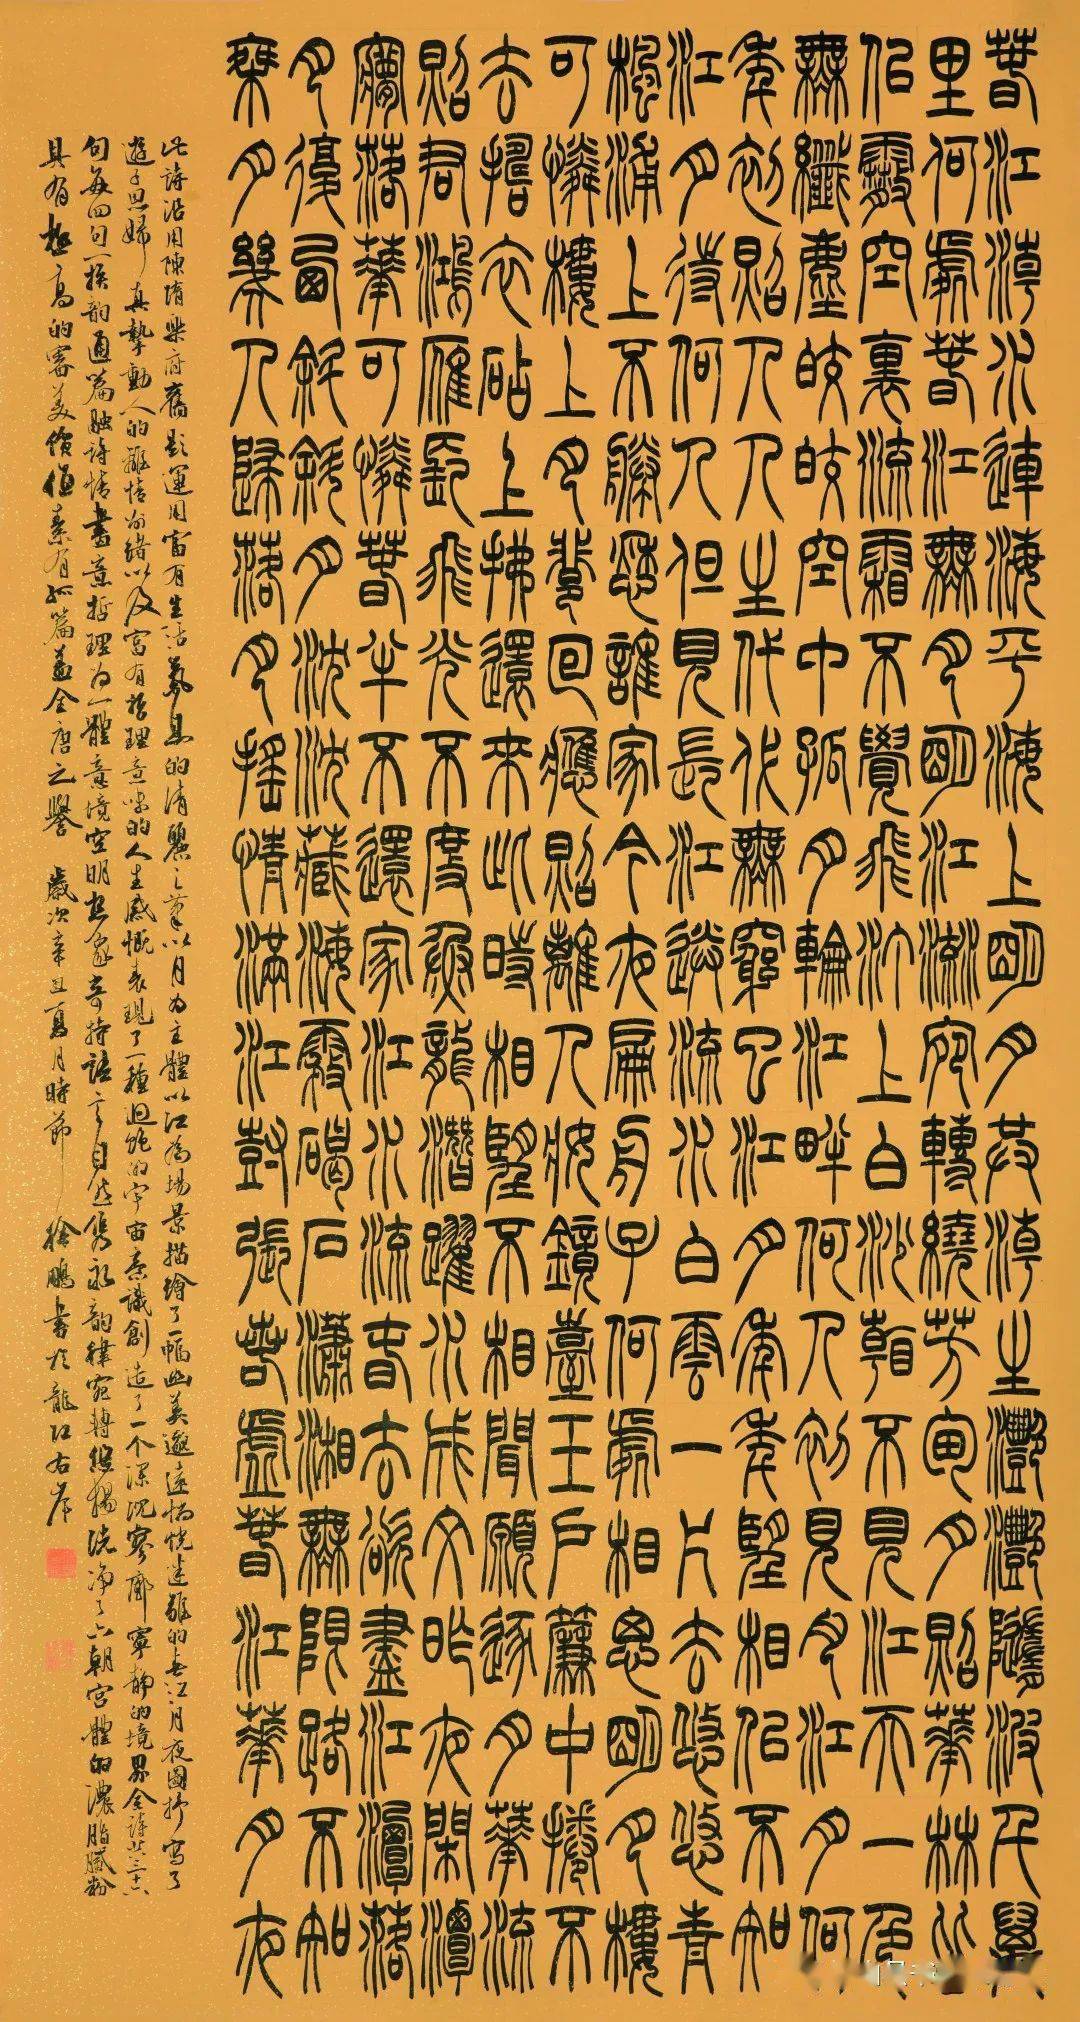 春江潮水連海平海上明月共潮生灩灩隨波千萬
里何處春江無月明江流宛轉繞芳甸月照華林皆
似霰空裏流霜不覺飛汀上白沙看不見江天一色
無纖塵皎皎空中孤月輪江畔何人初見月江月何
年初照人人生代代無窮已江月年年望相似不知
江月待何人但見長江送流水白雲一片去悠悠青
楓浦上不勝愁誰家今夜扁舟子何處相思明月樓
可憐樓上月裴回應照離人妝鏡臺玉戶簾中捲不
去搗衣砧上拂還來此時相望不相聞願逐月華流
照君鴻雁長飛光不度魚龍潛躍水成文昨夜閒潭
夢落華可憐春半不還家江水流春去欲盡江潭落
月復西斜斜月沈沈藏海霧碣石瀟湘無限路不知
乘月幾人歸落月搖情滿江樹張若虛春江華月夜
此詩沿用陳隋樂府舊題運用富有生活氣息的清麗之筆以月为主體以江為場景描繪了一幅幽美邈遠惝恍迷離的春江月夜圖抒寫了
遊子思婦真摯動人的離情別緒以及富有哲理意味的人生感慨表現了一種迥絕的宇宙意識創造了一个深沉寥廓寧靜的境界全詩共三十六
句每四句一換韵通篇融詩情畫意哲理为一體意境空明想象奇特語言自然雋永韵律宛轉悠揚洗淨了六朝宮體的濃脂膩粉
具有極高的審美價值素有孤篇蓋全唐之譽 歲次辛丑夏月時節 徐鵬書於龍江右岸